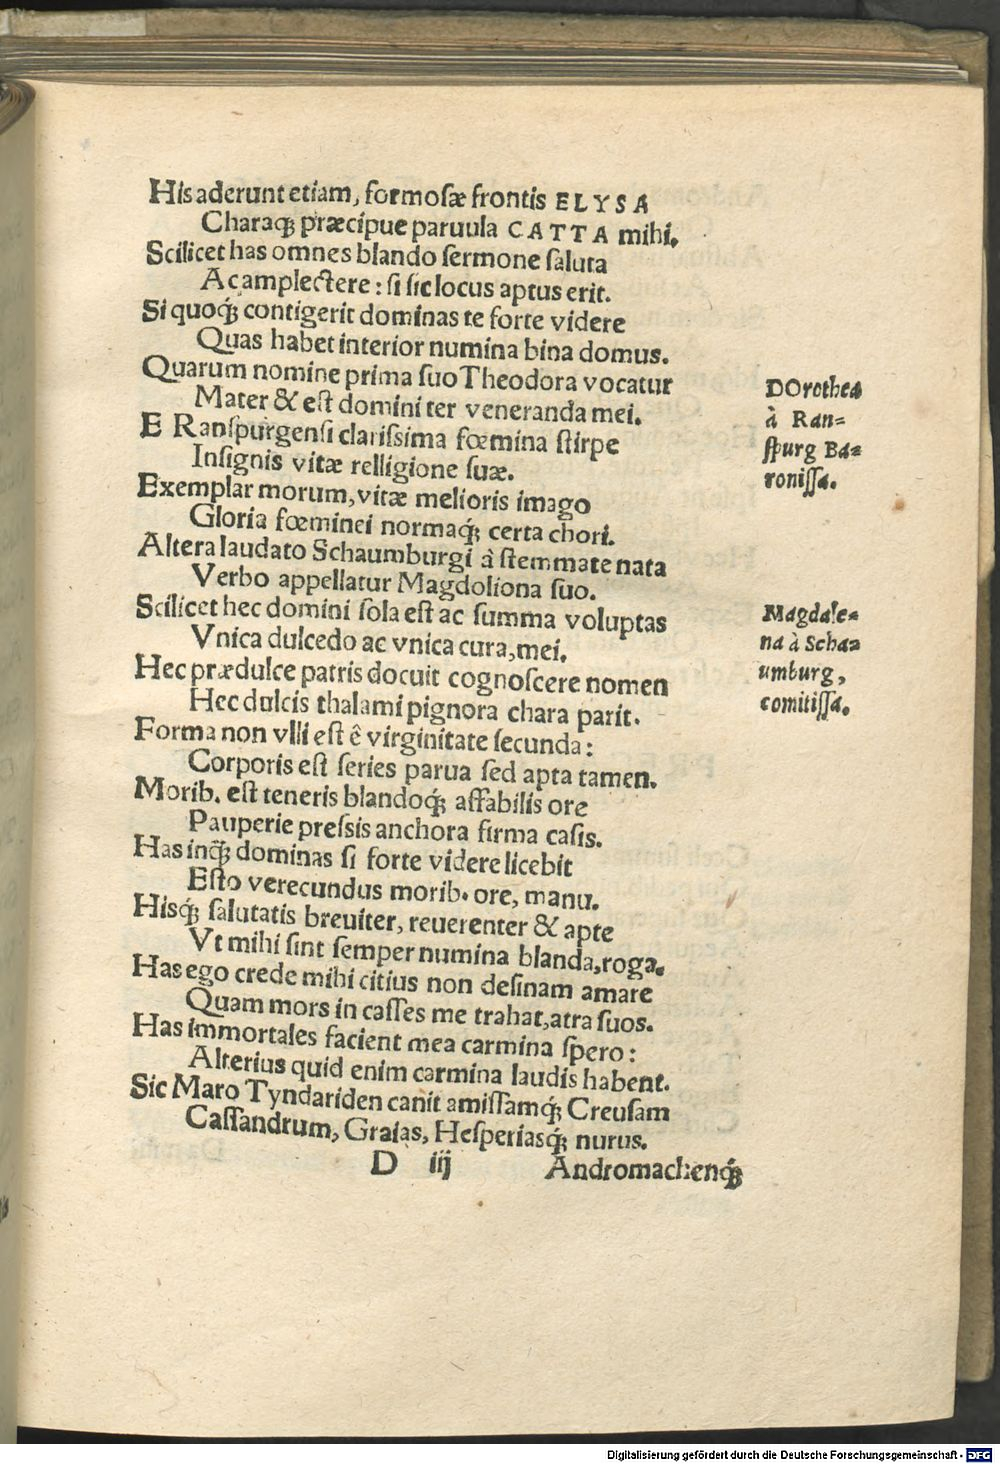 His aderunt etiam, formosæ frontis ELYSA
Charaq́; præcipue paruula CATTA mihi.
Scilicet has omnes blando sermone saluta
Ac amplectere: si sic locus aptus erit.
Si quoq́; contigerit dominas te forte videre
Quas habet interior numina bina domus.
Quarum nomine prima suo Theodora vocatur
Mater & est domini ter veneranda mei.
E Ranspurgensi clarissima fœmina stirpe
Insignis vitæ relligione suæ.
Exemplar morum, vitæ melioris imago
Gloria fœminei normaq́; certa chori.
Altera laudato Schaumburgi à stemmate nata
Verbo appellatur Magdoliona suo.
Scilicet hec domini sola est ac summa voluptas
Vnica dulcedo ac vnica cura, mei.
Hec prædulce patris docuit cognoscere nomen
Hec dulcis thalami pignora chara parit.
Forma non vlli est ê virginitate secunda:
Corporis est series parua sed apta tamen.
Morib. est teneris blandoq́; affabilis ore
Pauperie pressis anchora firma casis.
Has inq́; dominas si forte videre licebit
Esto verecundus morib. ore, manu.
Hisq́; salutatis breuiter, reuerenter & apte
Vt mihi sint semper numina blanda, roga.
Has ego crede mihi citius non desinam amare
Quam mors in casses me trahat, atra suos.
Has immortales facient mea carmina spero:
Alterius quid enim carmina laudis habent.
Sic Maro Tyndariden canit amissamq́; Creusam
Cassandrum, Graias, Hesperiasq́; nurus.
D iij Andromachenq́;
DOrothea
à Ran=
spurg Ba=
ronissa.
Magdale=
na à Scha=
umburg,
comitissa.
Digitalisierung gefördert durch die Deutsche Forschungsgemeinschaft - DFG